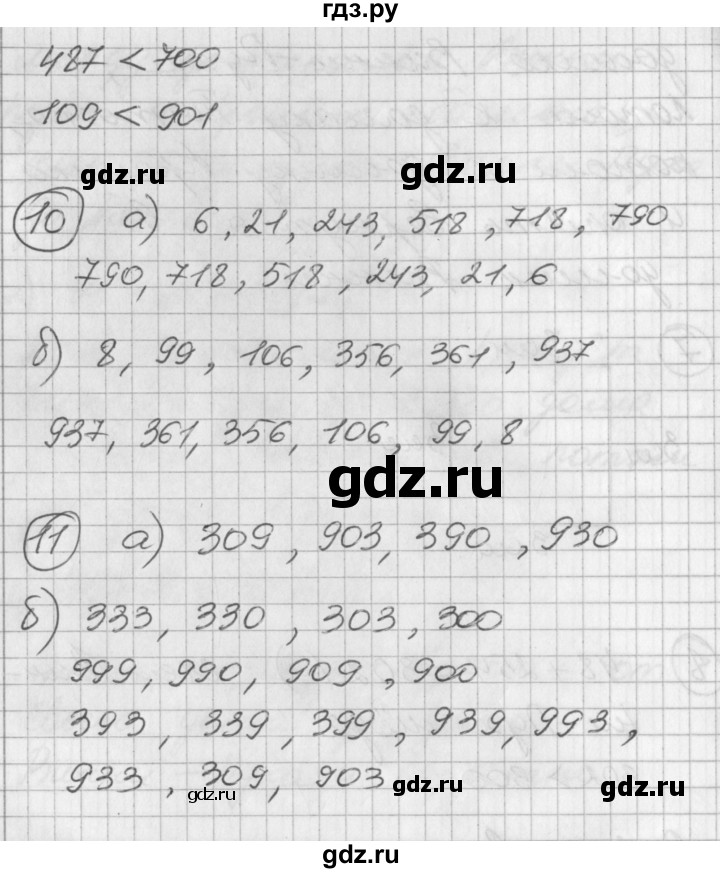 гдз.ру
487 < 700
109 < 901
gdz.ru
gdz.ru
10 а) 6, 21, 243, 518, 718, 790
790, 718, 518, 243, 21, 6
б) 8, 99, 106, 356, 361, 937
937, 361, 356, 106, 99, 8
gdz.ru
11 а) 309, 903, 390, 930
б) 333, 330, 303, 300
999, 990, 909, 900
393, 339, 399, 939, 993,
933, 309, 903
gdz.ru
gdz.ru
gdz.ru
gdz.ru